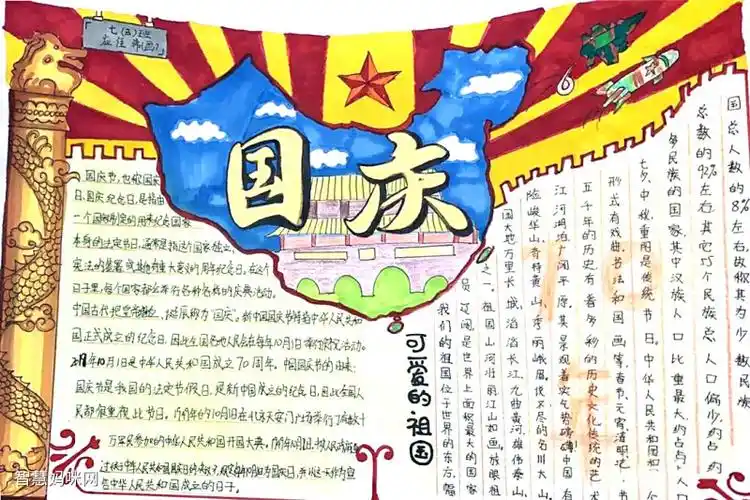 七(5)班
国庆
国庆节,也被国庆
日、国庆纪念日,是指由
一个国家制定的用来纪念国家
本身的法定节日,通常是指这个国家独立、
宪法的签署
日子里,每个国家都会举行各种各样的庆典活动。
中国古代把皇帝
国正式成立的纪念日,因此全国各地人民会在每年10月1日举行庆祝活动。
年10月1日是中华人民共和国成立70周年。中国国庆节的由来:
国庆节是我国的法定节假日,是新中国成立的纪念日,因此全国人
民都很重视此节日。
万军民参加的中华人民共和国开国大典。
在中华人民共和国成立的日子。
可爱的祖国
我们的祖国位于世界的东方,幅
员辽阔,是世界上面积最大的国家
之一。祖国山河壮丽江山如画,放眼祖
国大地万里长城,滔滔长江,九曲黄河雄伟泰山,
险峻华山,奇特黄山,秀丽峨眉,说不尽的名川大山
江河湖泊,广阔平原,其景观着实气势磅礴,中国
五千年的历史,有着多彩的历史文化传统的艺
形式有戏曲、书法和国画等,春节、元宵、清明、
七夕、中秋、重阳是传统节日。中华人民共和国和一个
多民族的国家其中汉族人口比重最大约占占人
总数的92%左右其它55个民族总人口偏少,约占约
国总人数的8%左右故称其为少数民族
智慧妈咪网